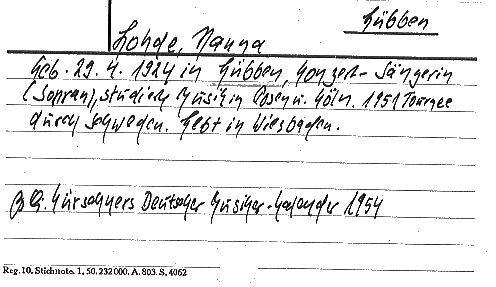 Lübben
Lohde, Nanna
Geb. 29. 4. 1924 in Lübben, Konzert-Sängerin
(Sopran), studiert Musik in Posen u. Köln. 1951 Tournee
durch Schweden. Lebt in Wiesbaden.
Kürschners Deutscher Musiker-Kalender 1954
Reg. 10. Stichnote. 1, 50. 232000. A. 803. S. 4062